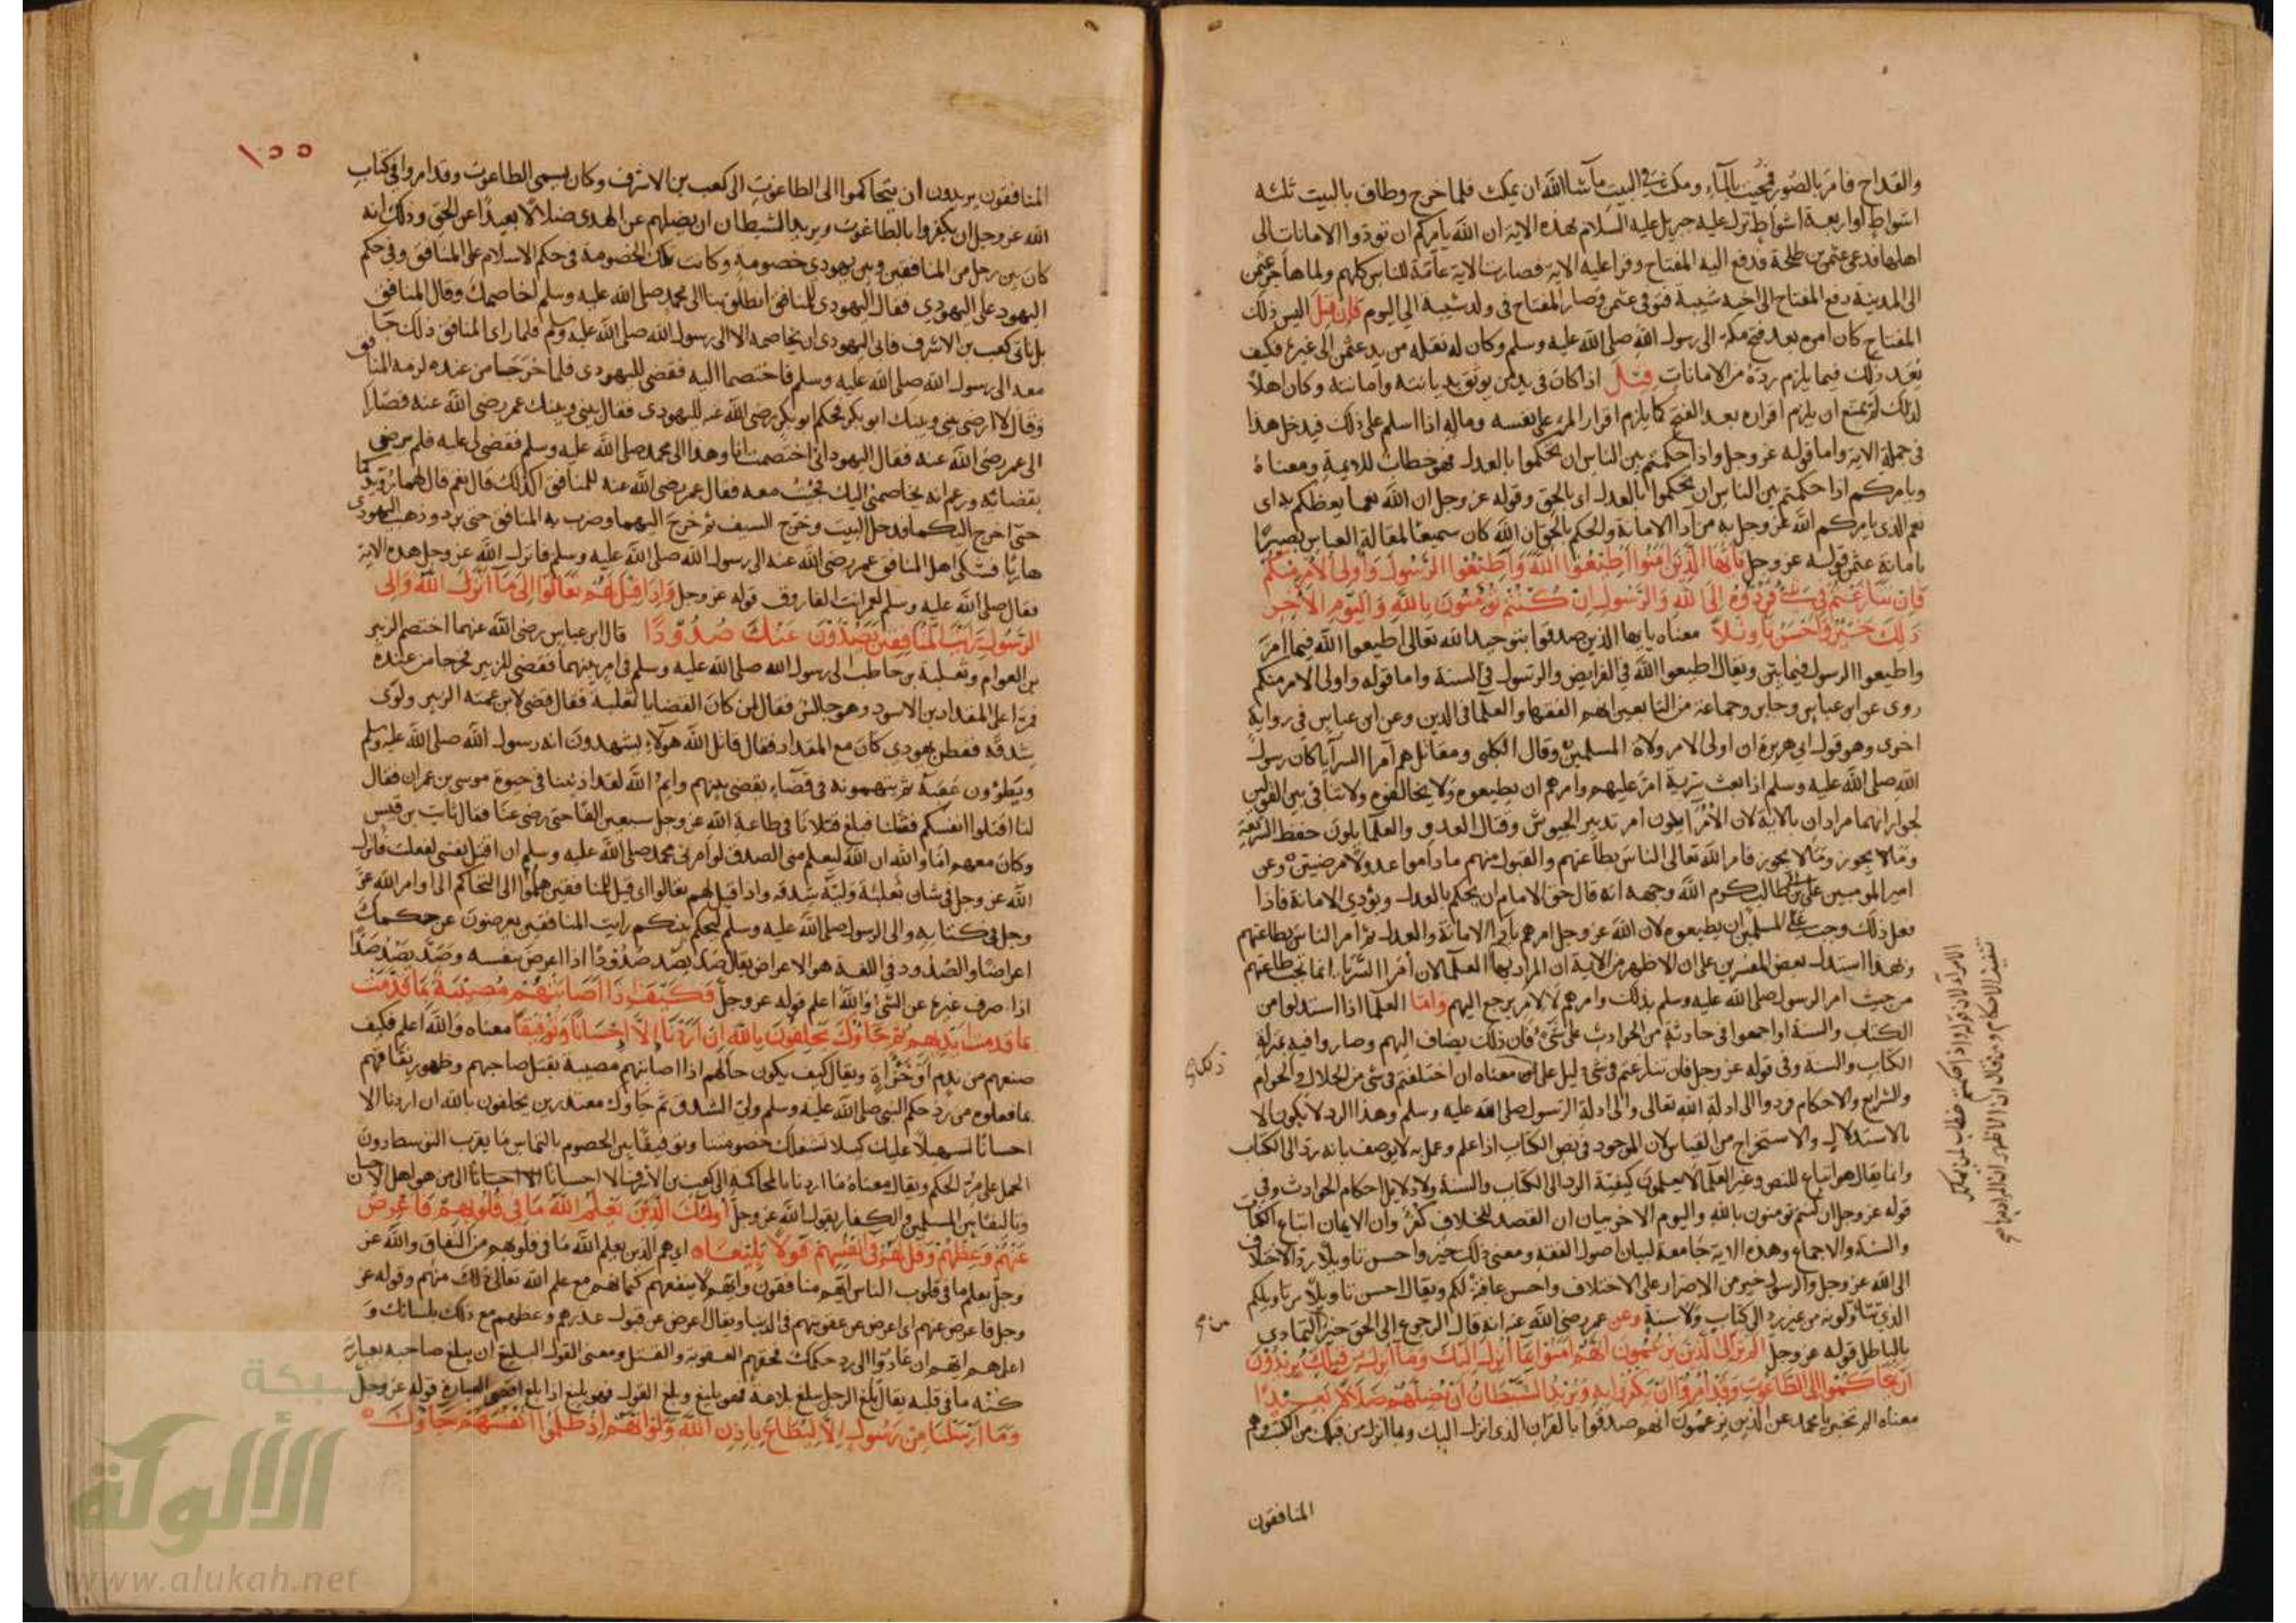 والقداح فامر بالصور فمحيت بالماء ومكث في البيت ما شا الله ان يمكث فلما خرج وطاف بالبيت ثلثه
اشواط او اربعة اشواط نزل عليه جبريل عليه السلام بهذه الاية ان الله يأمركم ان تؤدوا الامانات الى
اهلها فدعى عثمن بن طلحة فدفع اليه المفتاح وقرا عليه الاية فصارت الاية عامة للناس كلهم ولما هاجر عثمن
الى المدينة دفع المفتاح الى اخيه شيبة فتوفى عثمن وصار المفتاح فى ولد شيبة الى اليوم فان قيل اليس ذلك
المفتاح كان امره بعد فتح مكة الى رسول الله صلى الله عليه وسلم وكان له نقله من يد عثمن الى غيره فكيف
يعد ذلك فيما يلزم رده من الامانات قيل اذا كان فى يد من يوثق بديانته وامانته وكان اهلا
لذلك لم يمتنع ان يلزم اقراره بعد الفتح كما يلزم اقرار المرء على نفسه وماله اذا اسلم على ذلك فيدخل هذا
فى جملة الاية واما قوله عز وجل واذا حكمتم بين الناس ان تحكموا بالعدل فهو خطاب للايمة ومعناه
ويامركم اذا حكمتم بين الناس ان تحكموا بالعدل اى بالحق وقوله عز وجل ان الله نعما يعظكم به اى
نعم الذى يامركم الله عز وجل به من ادا الامانة والحكم بالحق ان الله كان سميعا لمقالة العباس بصيرا
بامانة عثمن قوله عز وجل يايها الذين امنوا اطيعوا الله واطيعوا الرسول واولى الامر منكم
فان تنازعتم فى شئ فردوه الى الله والرسول ان كنتم تؤمنون بالله واليوم الاخر
ذلك خير واحسن تاويلا معناه يايها الذين صدقوا بتوحيد الله تعالى اطيعوا الله فيما امر
واطيعوا الرسول فيما بين ويقال اطيعوا الله في الفرايض والرسول فى السنة واما قوله واولى الامر منكم
روى عن ابن عباس وجابر وجماعة من التابعين انهم الفقها والعلما فى الدين وعن ابن عباس فى رواية
اخرى وهو قول ابي هريرة ان اولى الامر ولاة المسلمين وقال الكلبى ومقاتل هم امرا السرايا كان رسول
الله صلى الله عليه وسلم اذا بعث سرية امر عليهم وامرهم ان يطيعوه ولا يخالفوه ولا تنافى بين القولين
لجواز انهما مرادان بالاية لان الامرا يلون امر تدبير الجيوش وقتال العدو والعلما يلون حفظ الشريعة
وما لا يجوز وما لا يجوز فامر الله تعالى الناس بطاعتهم والقبول منهم ما داموا عدولا مرضيين وعن
امير المومنين على بن ابى طالب كرم الله وجهه انه قال حق الامام ان يحكم بالعدل ويؤدي الامانة فاذا
فعل ذلك وجب على المسلمين ان يطيعوه لان الله عز وجل امرهم بادا الامانة والعدل ثم امر الناس بطاعتهم
وبهذا استدل بعض المفسرين على ان الاظهر من الاية ان المراد بها العلما لان امرا السرايا انما تجب طاعتهم
من حيث امر الرسول صلى الله عليه وسلم بذلك وامرهم لا لامر يرجع اليهم واما العلما اذا استدلوا من
الكتاب والسنة او اجمعوا فى حادثة من الحوادث على شئ فان ذلك يضاف اليهم وصاروا فيه بمنزلة
الكتاب والسنة وفى قوله عز وجل فان تنازعتم فى شئ دليل على معناه ان اختلفتم فى شئ من الحلال والحرام
والشرايع والاحكام ردوا الى ادلة الله تعالى والى ادلة الرسول صلى الله عليه وسلم وهذا الرد لا يكون الا
بالاستدلال والاستخراج من القياس لان الموجود فى نص الكتاب اذا علم وعمل به لا يوصف بانه رد الى الكتاب
وانما يقال هو اتباع للنص وغير العلما لا يعلمون كيفية الرد الى الكتاب والسنة ولا دلايل احكام الحوادث وفى
قوله عز وجل ان كنتم تومنون بالله واليوم الاخر بيان ان القصد للخلاف كفر وان الايمان اتباع الكتاب
والسنة والاجماع وهذه الاية جامعة لبيان اصول الفقه ومعنى ذلك خير واحسن تاويلا رد الاختلاف
الى الله عز وجل والرسول خير من الاصرار على الاختلاف واحسن عاقبة لكم ويقال احسن تاويلا من تاويلكم
الذى تتاولونه من غير رد الى كتاب ولا سنة وعن عمر رضى الله عنه انه قال الرجوع الى الحق خير التمادي
بالباطل قوله عز وجل الم تر الى الذين يزعمون انهم امنوا بما انزل اليك وما انزل من قبلك يريدون
ان يتحاكموا الى الطاغوت وقد امروا ان يكفروا به ويريد الشيطان ان يضلهم ضلالا بعيدا
معناه الم تخبر يا محمد عن الذين يزعمون انهم صدقوا بالقران الذى انزل اليك وبما انزل من قبلك من الكتب وهم
المنافقون
١٥٥
المنافقون يريدون ان يتحاكموا الى الطاغوت الى كعب بن الاشرف وكان يسمى الطاغوت وقد امروا فى كتاب
الله عز وجل ان يكفروا بالطاغوت ويريد الشيطان ان يضلهم عن الهدى ضلالا بعيدا عن الحق وذلك انه
كان بين رجل من المنافقين وبين يهودى خصومة وكانت تلك الخصومة فى حكم الاسلام على المنافق وفى حكم
اليهود على اليهودي فقال اليهودى للمنافق انطلق بنا الى محمد صلى الله عليه وسلم اخاصمك وقال المنافق
بل ناتى كعب بن الاشرف فابى اليهودى ان يخاصمه الا الى رسول الله صلى الله عليه وسلم فلما راى المنافق ذلك جا
معه الى رسول الله صلى الله عليه وسلم فاختصما اليه فقضى لليهودى فلما خرجا من عنده لزمه المنافق
وقال لا ارضى بينى وبينك ابو بكر فحكم ابو بكر رضى الله عنه لليهودى فقال بينى وبينك عمر رضى الله عنه فصارا
الى عمر رضى الله عنه فقال اليهودى اختصمت انا وهذا الى محمد صلى الله عليه وسلم فقضى لى عليه فلم يرضى
بقضائه وزعم انه يخاصمنى اليك فجئت معه فقال عمر رضى الله عنه للمنافق اكذلك قال نعم قال لهما رويدكما
حتى اخرج اليكما فدخل البيت وخرج السيف ثم خرج اليهما وضرب به المنافق حتى برد وذهب اليهودى
هاربا فشكى اهل المنافق عمر رضى الله عنه الى رسول الله صلى الله عليه وسلم فانزل الله عز وجل هذه الاية
فقال صلى الله عليه وسلم لعمر انت الفاروق قوله عز وجل واذا قيل لهم تعالوا الى ما انزل الله والى
الرسول رايت المنافقين يصدون عنك صدودا قال ابن عباس رضى الله عنهما اختصم الزبير
بن العوام وثعلبة بن حاطب الى رسول الله صلى الله عليه وسلم فى امر بينهما فقضى للزبير فخرجا من عنده
فمرا على المقداد بن الاسود وهو جالس فقال لمن كان القضا يا ثعلبة فقال قضى لابن عمته الزبير ولوى
شدقه ففطن يهودي كان مع المقداد فقال قاتل الله هولاء يشهدون انه رسول الله صلى الله عليه وسلم
ويطؤون عقبه ثم يتهمونه فى قضاء يقضى بينهم وايم الله لقد اذنبنا فى حيوة موسى بن عمران فقال
لنا اقتلوا انفسكم فقتلنا فبلغ قتلانا فى طاعة الله عز وجل سبعين الفا حتى رضى عنا فقال ثابت بن قيس
وكان معهم اما والله ان الله ليعلم منى الصدق لو امرنى محمد صلى الله عليه وسلم ان اقتل نفسى لفعلت فانزل
الله عز وجل فى شان ثعلبة وليه شدقه واذا قيل لهم تعالوا اى قيل للمنافقين هلموا الى التحاكم الى اوامر الله عز
وجل فى كتابه والى الرسول صلى الله عليه وسلم ليحكم بينكم رايت المنافقين يعرضون عن حكمك
اعراضا والصدود فى اللغة هو الاعراض يقال صد يصد صدودا اذا اعرض بنفسه وصد يصد صدا
اذا صرف غيره عن الشى والله اعلم قوله عز وجل فكيف اذا اصابتهم مصيبة بما قدمت
بما قدمت ايديهم ثم جاؤك يحلفون بالله ان اردنا الا احسانا وتوفيقا معناه والله اعلم فكيف
صنعهم من ندم او خزاة ويقال كيف يكون حالهم اذا اصابتهم مصيبة بقتل صاحبهم وظهور نفاقهم
بما فعلوه من رد حكم النبى صلى الله عليه وسلم ولى الشدق ثم جاوك معتذرين يحلفون بالله ان اردنا الا
احسانا تسهيلا عليك كيلا نشغلك خصومتنا وتوفيقا بين الخصوم بالتماس ما يقرب التوسط دون
الحمل على مر الحكم ويقال معناه ما اردنا بالمحاكمة الى كعب بن الاشرف الا احسانا الى من هو اهل الاحسان
وتاليفا بين المسلمين والكفار يقول الله عز وجل اولئك الذين يعلم الله ما فى قلوبهم فاعرض
عنهم وعظهم وقل لهم فى انفسهم قولا بليغا اى هم الذين يعلم الله ما فى قلوبهم من النفاق والله عز
وجل يعلم ما فى قلوب الناس انهم منافقون وانهم لا ينفعهم كتمانهم مع علم الله تعالى ذلك منهم وقوله عز
وجل فاعرض عنهم اى اعرض عن عقوبتهم فى الدنيا ويقال اعرض عن قبول عذرهم وعظهم مع ذلك بلسانك و
اعلمهم انهم ان عادوا الى رد حكمك فحقهم العقوبة والقتل ومعنى القول البليغ ان يبلغ صاحبه بعبارة
كنه ما فى قلبه يقال بلغ الرجل يبلغ بلاغة فهو بليغ وبلغ القول فهو بليغ اذا بلغ اقصى العبارة قوله عز وجل
وما ارسلنا من رسول الا ليطاع باذن الله ولو انهم اذ ظلموا انفسهم جاؤك
شبكة
الألوكة
www.alukah.net